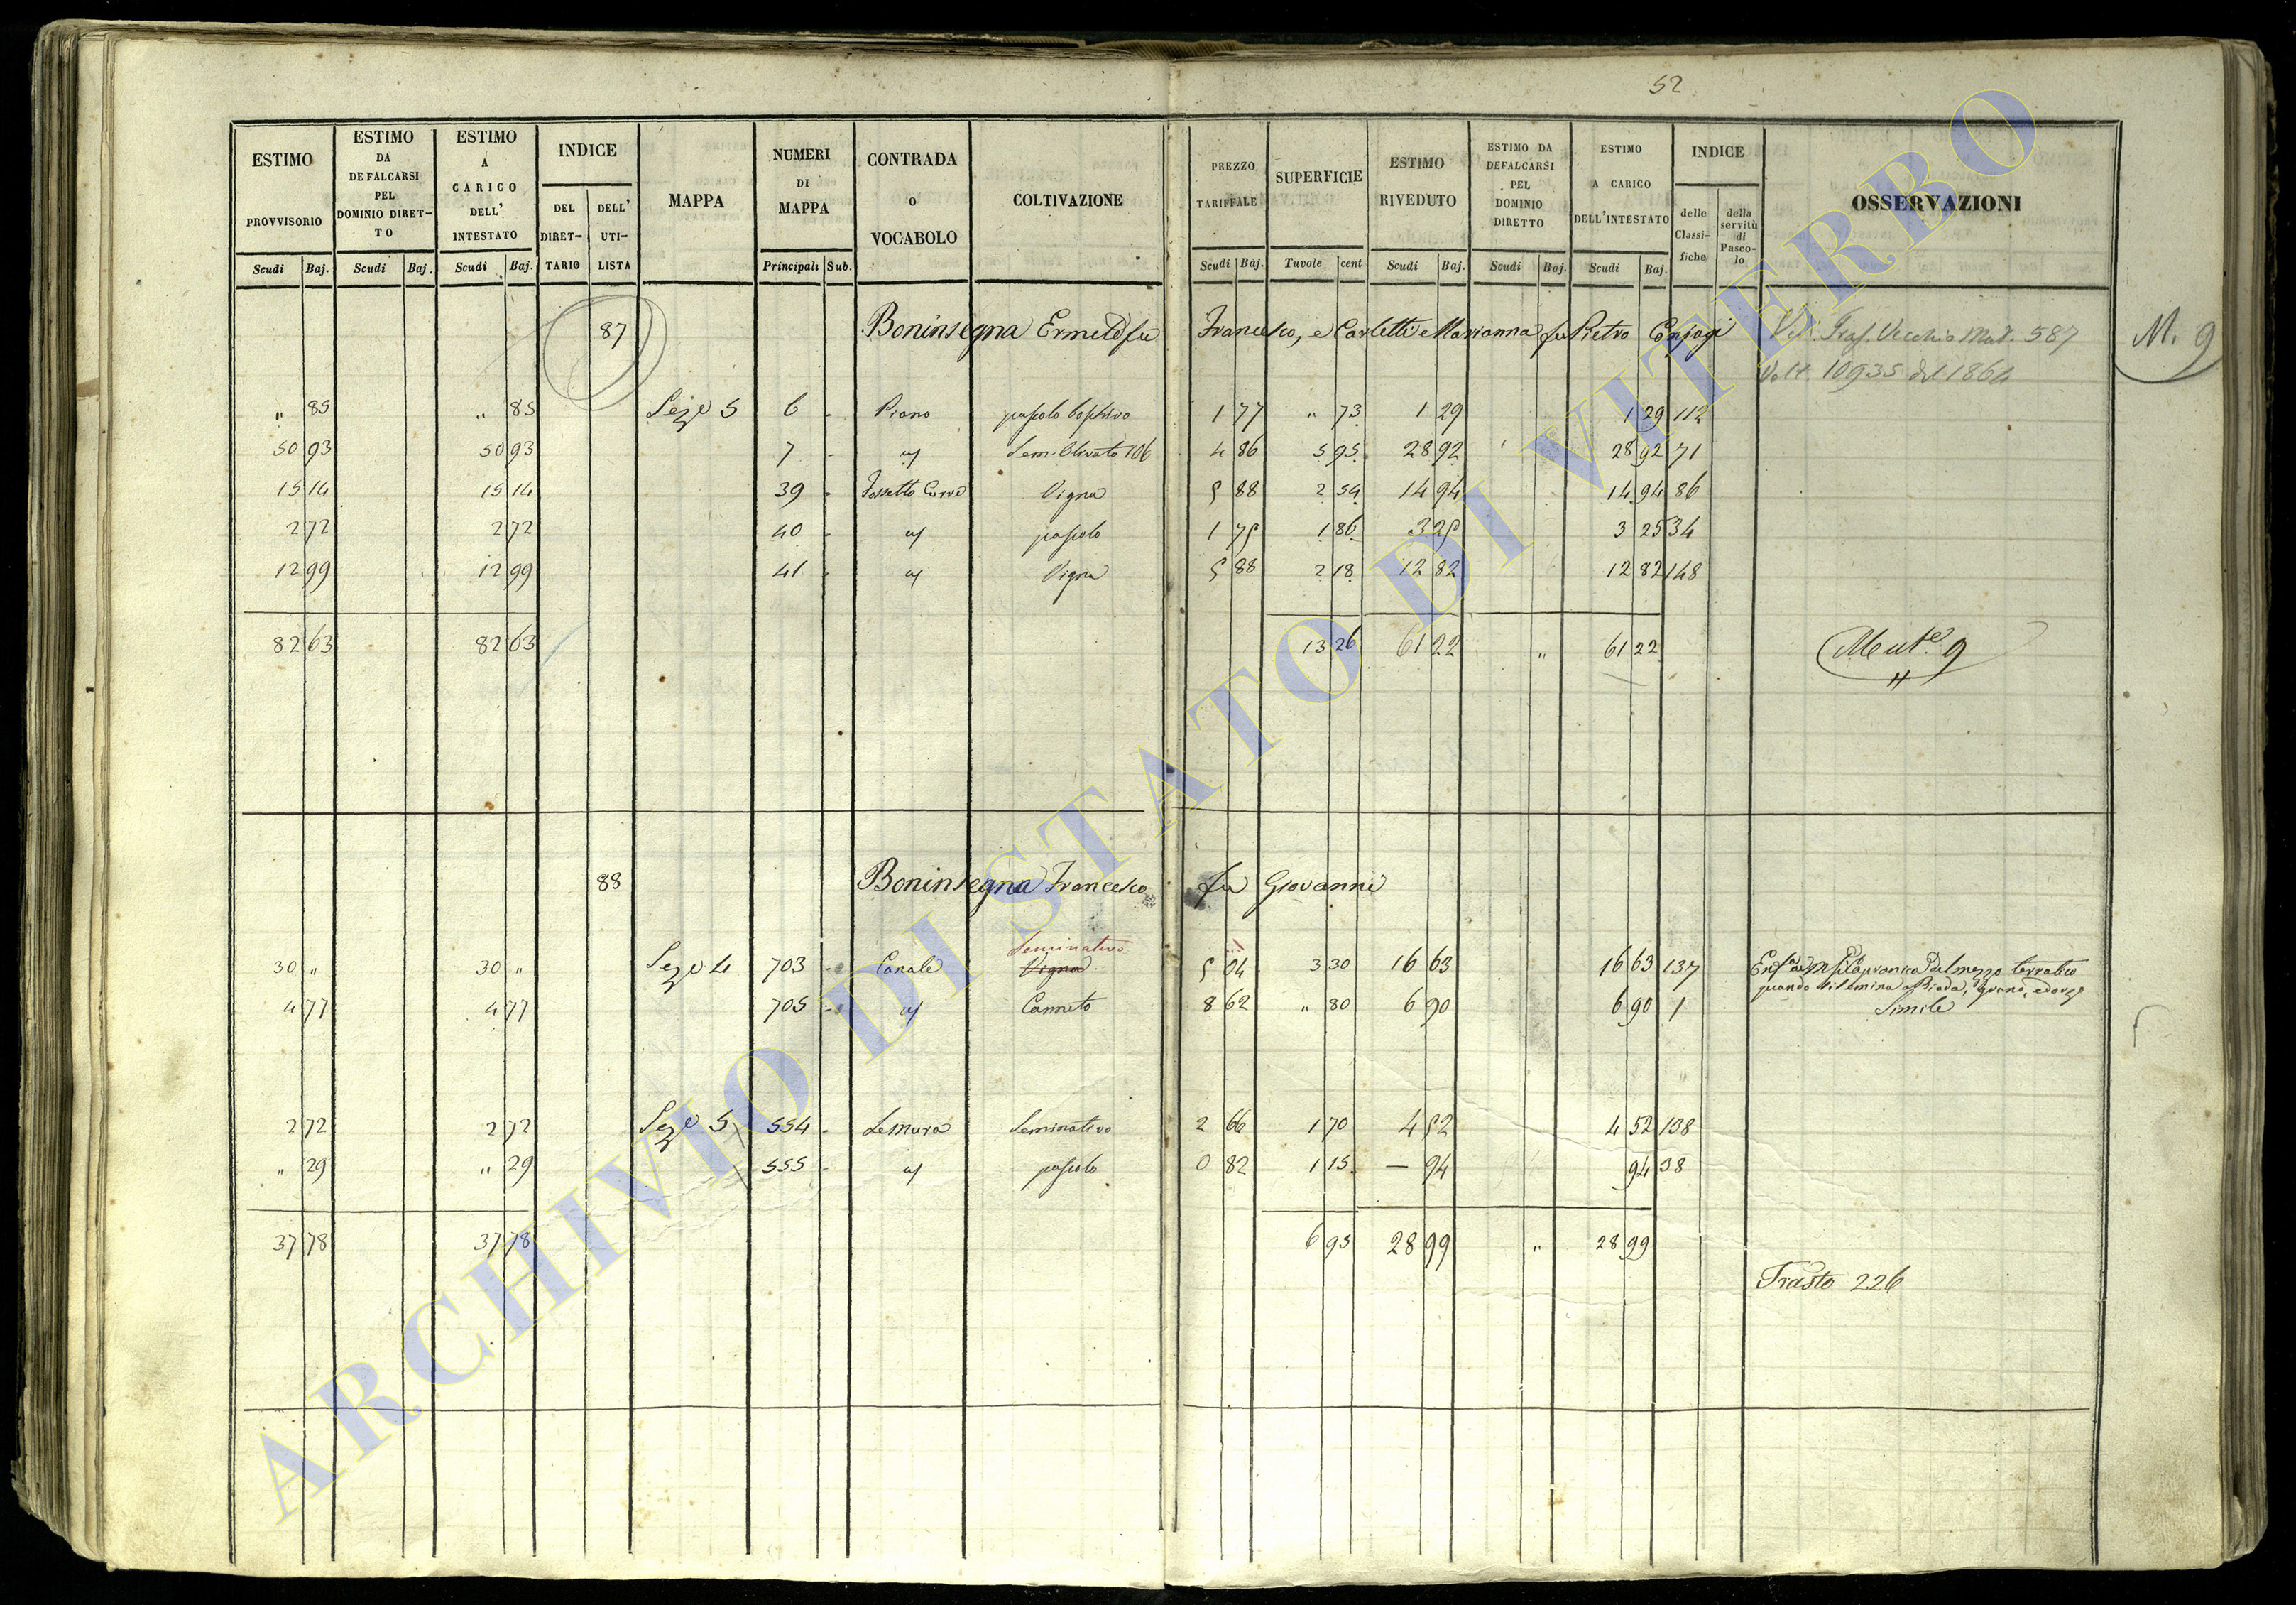 52
ESTIMO PROVVISORIO | ESTIMO DA DEFALCARSI PEL DOMINIO DIRET-TO | ESTIMO A CARICO DELL' INTESTATO | INDICE | MAPPA | NUMERI DI MAPPA | CONTRADA O VOCABOLO | COLTIVAZIONE | PREZZO TARIFFALE | SUPERFICIE | ESTIMO RIVEDUTO | ESTIMO DA DEFALCARSI PEL DOMINIO DIRETTO | ESTIMO A CARICO DELL'INTESTATO | INDICE | OSSERVAZIONI
DEL DIRET-TARIO | DELL' UTI-LISTA | delle Classi-fiche | della servitù di Pasco-lo
Scudi | Baj. | Scudi | Baj. | Scudi | Baj. | Principali | Sub. | Scudi | Baj. | Tuvole | cent | Scudi | Baj. | Scudi | Baj. | Scudi | Baj.
87 Boninsegna fu Francesco, e Carletti Marianna fu Pietro Conjugi Vecchio Mut. 587 M. 9
10935 del 1864
" 85 " 85 Seze 5 6 - Piano pascolo 1 77 " 73 1 29 1 29 112
50 93 50 93 7 - " Sem. Olivato 106 4 86 5 95 28 92 28 92 71
15 14 15 14 39 - Fossetto Vigna 5 88 2 54 14 94 14 94 86
2 72 2 72 40 - " pascolo 1 75 1 86 3 25 3 25 34
12 99 12 99 41 - " Vigna 5 88 2 18 12 82 12 82 148
82 63 82 63 13 26 61 22 " 61 22 Mut.e 9
88 Boninsegna Francesco fu Giovanni
Seminativo
30 " 30 " Seze 4 703 - Canale Vigna 5 04 3 30 16 63 16 63 137 Capranica pel mezzo terratico
quando si semina a Biada, grano, ed orzo
4 77 4 77 705 - " Canneto 8 62 " 80 6 90 6 90 1 Simile
2 72 2 72 Seze 5 554 - Le mura Seminativo 2 66 1 70 4 52 4 52 138
" 29 " 29 555 - " pascolo 0 82 1 15 — 94 94 38
37 78 37 78 6 95 28 99 " 28 99
Trasto 226
ARCHIVIO DI STATO DI VITERBO